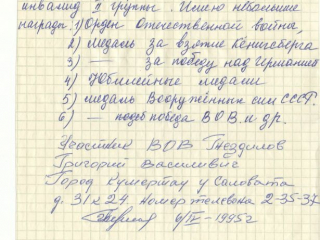 инвалид II группы. Имею небольшие
награды: 1) Орден Отечественной война,
2) медаль За взятие Кёнигсберга
3) —— За победу над Германией
4) Юбилейные медали
5) медаль Вооружённых сил СССР.
6) — победа В О В. и др.
Участник ВОВ Гнездилов
Григорий Василивич
Город Кумертау у Салавата
д. 31 к 24. номер телефона 2-35-37
6/IV-1995 г